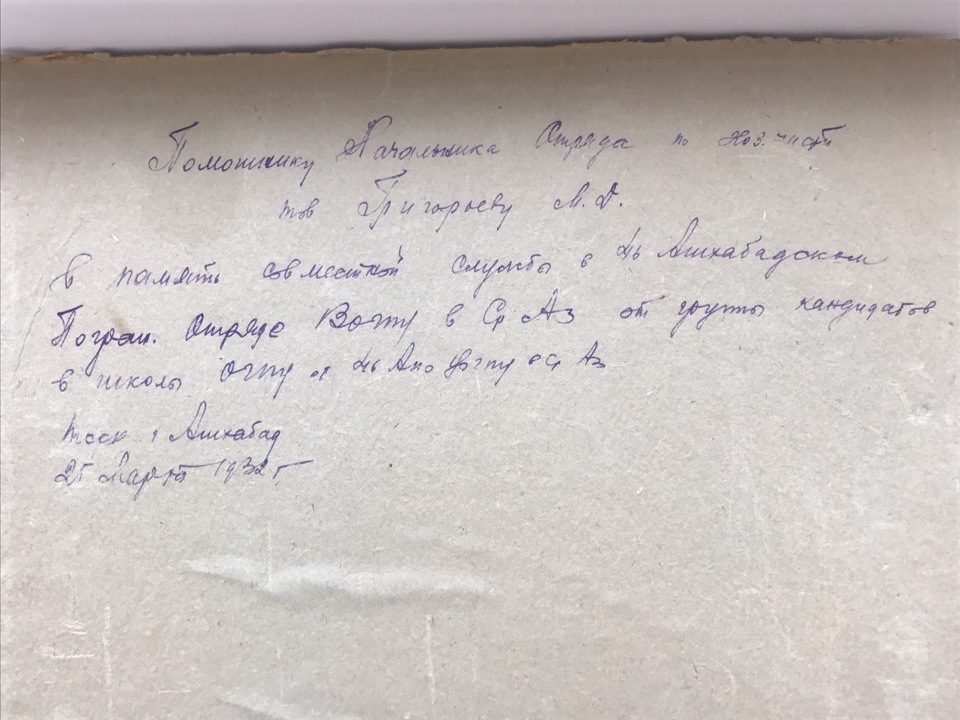 Помошнику Начальника Отряда по хоз. части
тов Григорьеву М.Д.
в память совместной службы в 46 Ашхабадском
Погран. Отряде Вогпу в Ср Аз от группы кандидатов
в школы Огпу от 46 Апо Вогпу в Ср Аз
тсск г Ашхабад
Март 1932 г